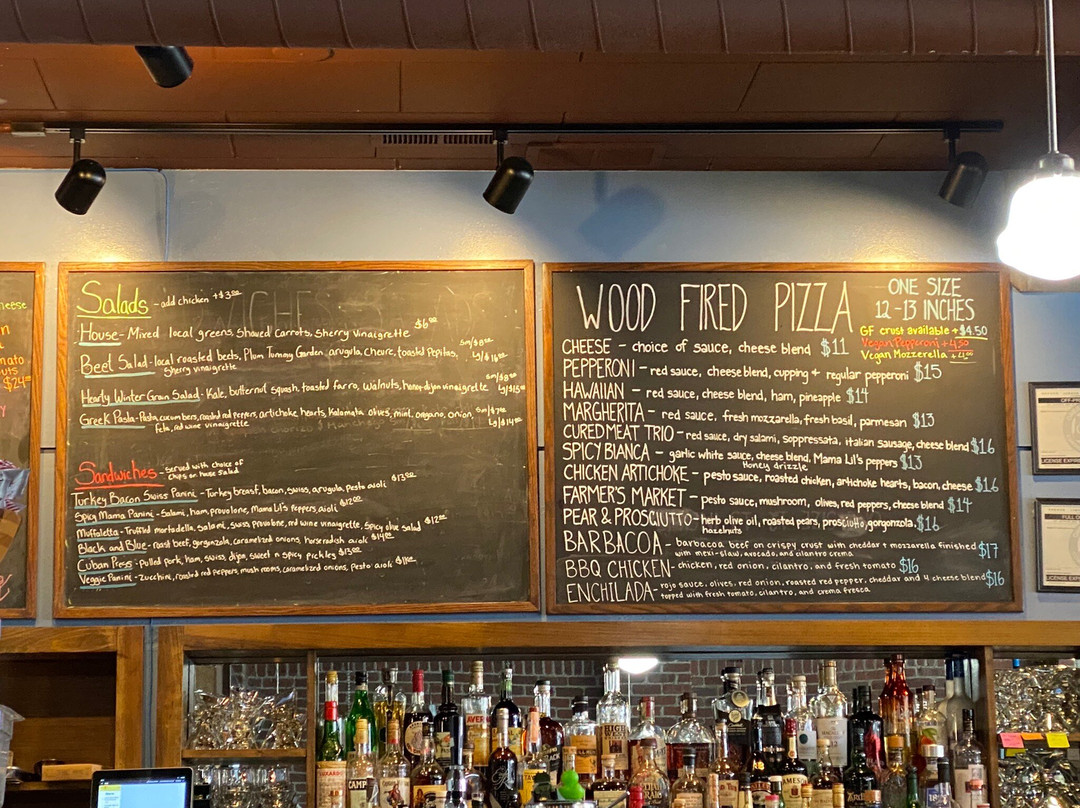 cheese
$24
Salads - add chicken +$3.00
House - Mixed local greens, shaved carrots, sherry vinaigrette $6.00
Beet Salad - local roasted beets, Plum Tummy Garden arugula, chevre, toasted pepitas,
sherry vinaigrette
Hearty Winter Grain Salad - Kale, butternut squash, toasted farro, walnuts, honey-dijon vinaigrette
Greek Pasta - Pasta, cucumbers, roasted red peppers, artichoke hearts, Kalamata olives, mint, oregano, onion,
feta, red wine vinaigrette
Sandwiches - served with choice of
chips or house salad
Turkey Bacon Swiss Panini - Turkey breast, bacon, swiss, arugula, pesto aioli $13.00
Spicy Mama Panini - Salami, ham, provolone, Mama Lil's peppers, aioli $12.00
Muffaletta - Truffled mortadella, salami, swiss, provolone, red wine vinaigrette, spicy olive salad $12.00
Black and Blue - roast beef, gorgonzola, caramelized onions, horseradish aioli $14.00
Cuban Press - pulled pork, ham, swiss, dijon, sweet n spicy pickles $13.00
Veggie Panini - zucchini, roasted red peppers, mushrooms, caramelized onions, pesto aioli
WOOD FIRED PIZZA
ONE SIZE
12-13 INCHES
GF crust available +$4.50
Vegan Pepperoni +4.50
Vegan Mozzerella +4.00
CHEESE - choice of sauce, cheese blend $11
PEPPERONI - red sauce, cheese blend, cupping + regular pepperoni $15
HAWAIIAN - red sauce, cheese blend, ham, pineapple $14
MARGHERITA - red sauce, fresh mozzarella, fresh basil, parmesan $13
CURED MEAT TRIO - red sauce, dry salami, soppressata, italian sausage, cheese blend $16
SPICY BIANCA - garlic white sauce, cheese blend, Mama Lil's peppers $13
Honey drizzle
CHICKEN ARTICHOKE - pesto sauce, roasted chicken, artichoke hearts, bacon, cheese $16
FARMER'S MARKET - pesto sauce, mushroom, olives, red peppers, cheese blend $14
PEAR & PROSCIUTTO - herb olive oil, roasted pears, prosciutto, gorgonzola, $16
hazelnuts
BARBACOA - barbacoa beef on crispy crust with cheddar + mozzarella finished $17
with mexi-slaw, avocado, and cilantro crema
BBQ CHICKEN - chicken, red onion, cilantro, and fresh tomato $16
ENCHILADA - rojo sauce, olives, red onion, roasted red pepper, cheddar and 4 cheese blend $16
topped with fresh tomato, cilantro, and crema fresca